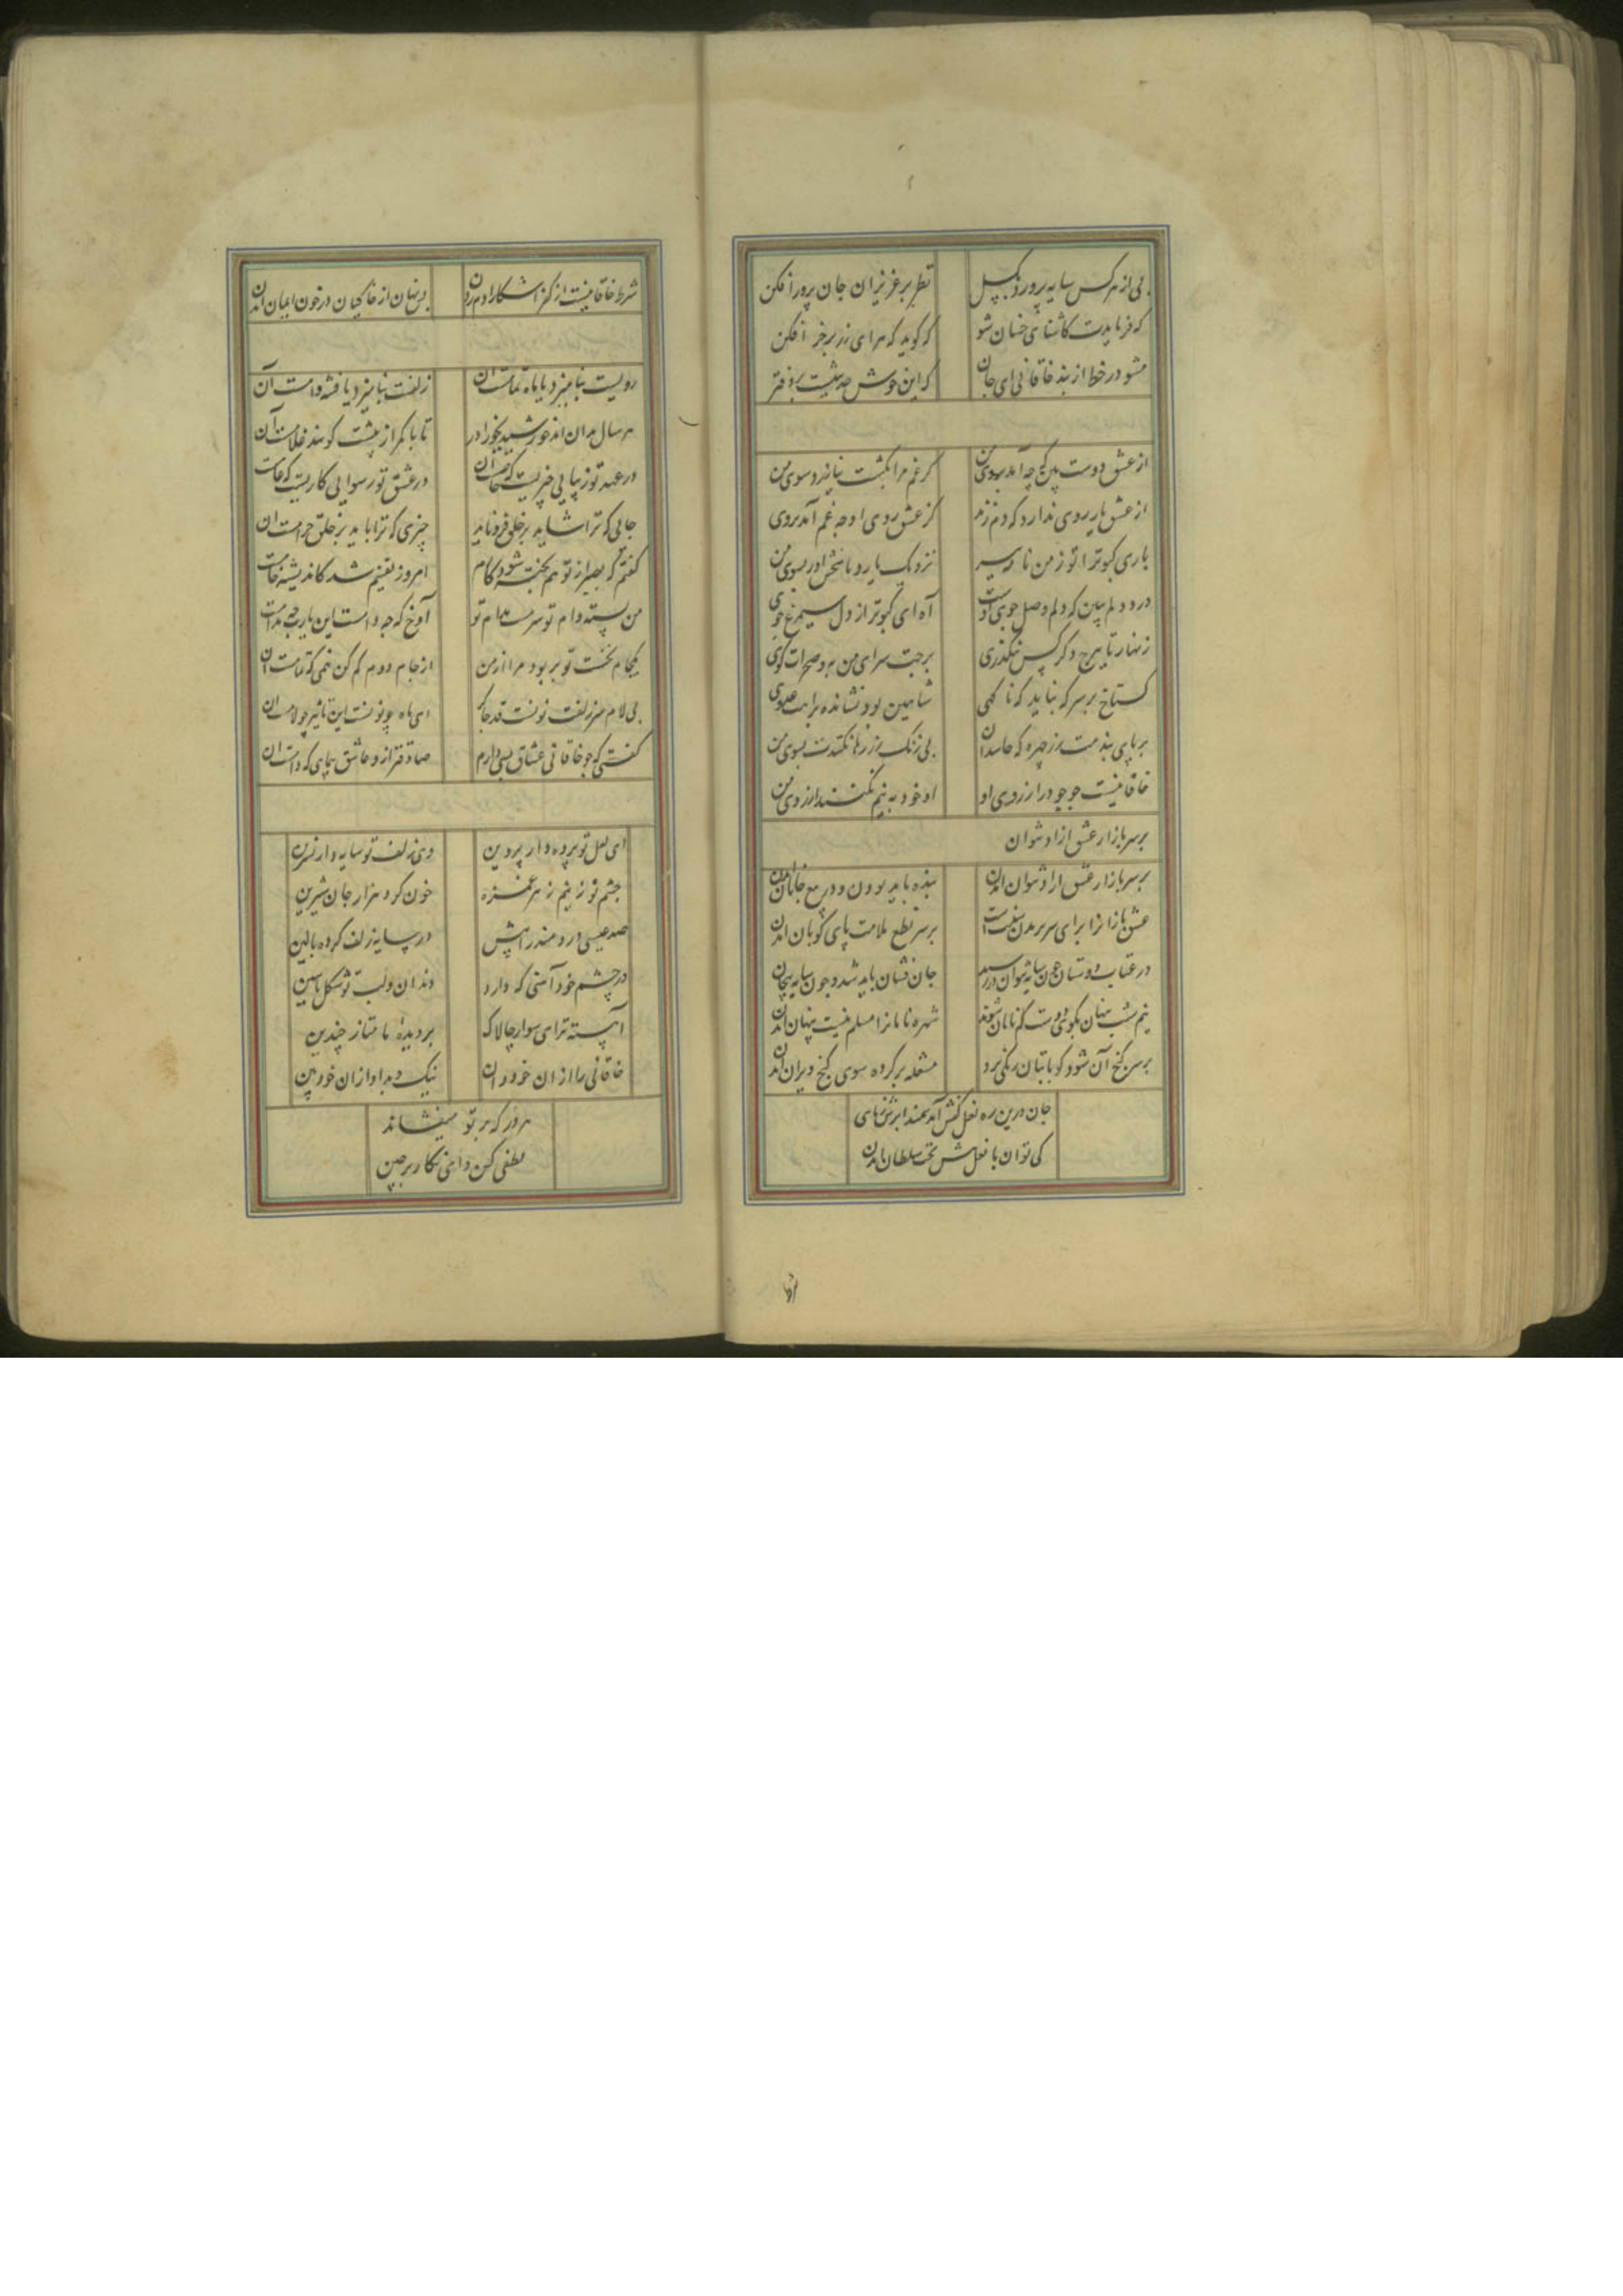 پی از هرکس سایه پرور و بگسل نظر بر عزیزان جان پرور افکن
که فرمایدت کاشنای خسان شو که گوید که هرای زر بر خر افکن
مشو در خط از بند خاقانی ای جان که این خوش حدیثیست بر دفتر
از عشق دوست بین که چه آمد بروی من کز غم مرا بکشت نیازرد سوی من
از عشق یار روی ندارد که دم زند کز عشق روی او چه غم آمد بروی
باری کبوترا تو ز من نامه ببر نزدیک یار و پاسخش آور بسوی من
درد دلم ببین که دلم وصل جوی اوست آه ای کبوتر از دل سیمرغ جوی
زنهار تا ببرج دگر کس نگذری برجت سرای من به و صحرات کوی
گستاخ برمپر که نباید که ناگهی شاهین بود نشانده براهت عدوی
بر پای بندمت زر چهره که حاسدان بی رنگ زر رها نکندت بسوی من
خاقانیست جوجو در آرزوی او او خود به نیم جو نکند آرزوی من
بر سر بازار عشق آزاد نتوان
بر سر بازار عشق آزاد نتوان آمدن بنده باید بودن و در بیع جانان آمدن
عشق بازان را برای سر بریدن سنت است بر سر نطع ملامت پای کوبان آمدن
در عتاب دوستان چون سایه نتوان در رسید جان فشان باید شد و چون سایه پیچان
نیم شب پنهان بکوی دوست گم نامان شوند شهره نامان را مسلم نیست پنهان آمدن
بر سر گنج آن شود کو پا بتاریکی برد مشعله بر کرده سوی گنج ویران آمدن
جان درین ره نعل کفش آمد بیندازش ز پای
کی توان با نعل پیش تخت سلطان آمدن
شرط خاقانیست از کفر آشکارا دم زدن پس نهان از خاکیان در خون ایمان آمدن
رویست بنامیزد یا ماه تمامست آن زلفست بنامیزد یا فتنه دامست آن
هر سال بدان آید خورشید بجوزا در تا با کمر از پیشت گویند غلامست آن
در عهد تو زیبایی چیزیست که خاصست آن در عشق تو رسوایی کاریست که عامست
جایی که ترا شاید بر خلق فرو ناید چیزی که ترا باید بر خلق حرامست آن
گفتم که بصبر از تو هم پخته شود کام امروز یقینم شد کاندیشه خامست
من پسته دام تو سرمست مدام تو آوخ که چه دامست این یارب چه مدامست
یکجام نخست تو بربود مرا از من از جام دوم کم کن نیمی که تمامست آن
بی لام سر زلفت نونست قد چاکر ای ماه چو نونست این تا بر چو لامست آن
گفتی که چو خاقانی عشاق بسی دارم صادق تر ازو عاشق بنمای کدامست آن
ای لعل تو پرده دار پروین وی زلف تو سایه دار نسرین
چشم تو ز نیم زهر غمزه خون کرد هزار جان شیرین
صد عیسی دردمند را پیش در سایه زلف کرده بالین
در چشم خود آمنی که دارد دندان و لب تو شکل یاسین
آهسته تر ای سوار چالاک بر دیده ما متاز چندین
خاقانی را از آن خود دان نیک و بد او از آن خود بین
هر زر که بر تو میفشاند
لطفی کن و ای نگار برچین